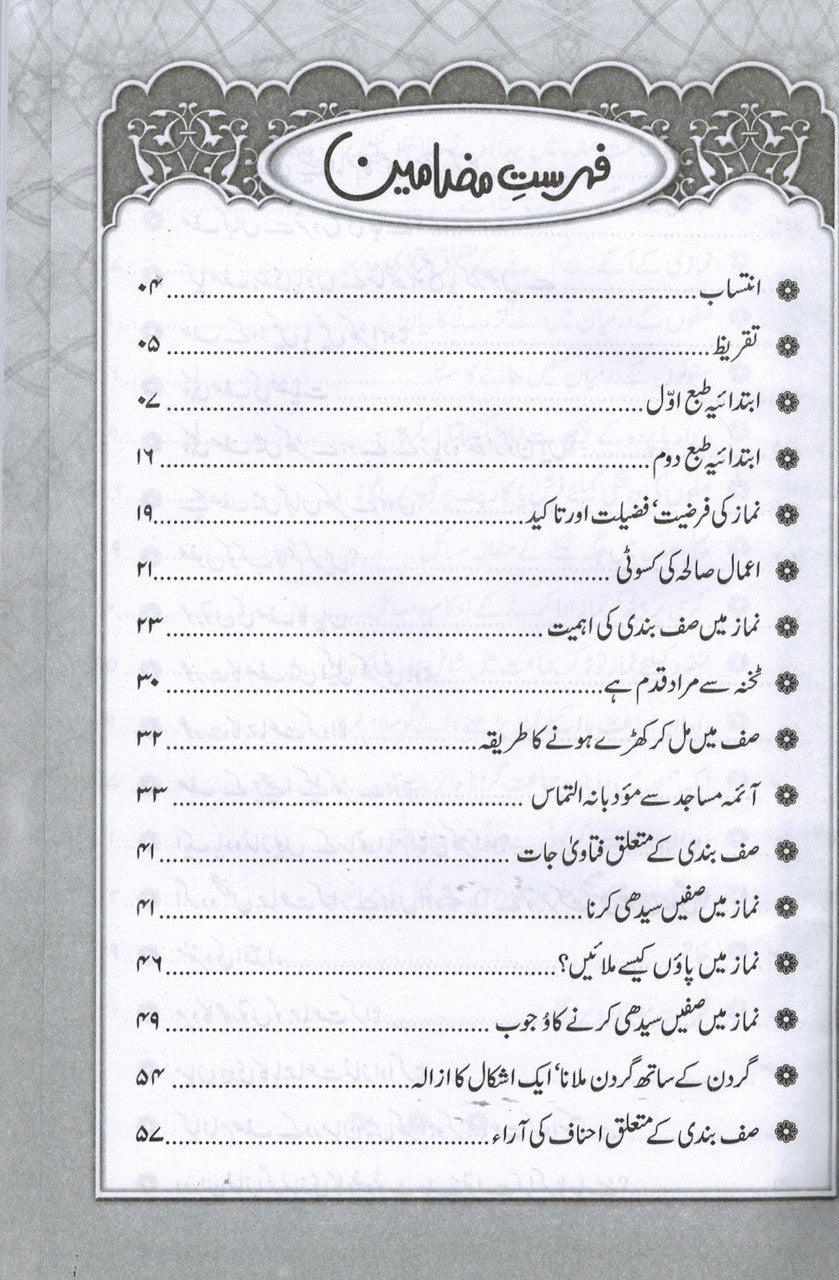 فہرستِ مضامین
انتساب ۰۴
تقریظ ۰۵
ابتدائیہ طبع اوّل ۰۷
ابتدائیہ طبع دوم ۱۶
نماز کی فرضیت‘ فضیلت اور تاکید ۱۹
اعمال صالحہ کی کسوٹی ۲۱
نماز میں صف بندی کی اہمیت ۲۳
ٹخنہ سے مراد قدم ہے ۳۰
صف میں مل کر کھڑے ہونے کا طریقہ ۳۲
آئمہ مساجد سے مؤدبانہ التماس ۳۳
صف بندی کے متعلق فتاویٰ جات ۴۱
نماز میں صفیں سیدھی کرنا ۴۱
نماز میں پاؤں کیسے ملائیں؟ ۴۶
نماز میں صفیں سیدھی کرنے کا وُجوب ۴۹
گردن کے ساتھ گردن ملانا‘ ایک اشکال کا ازالہ ۵۴
صف بندی کے متعلق احناف کی آراء ۵۷